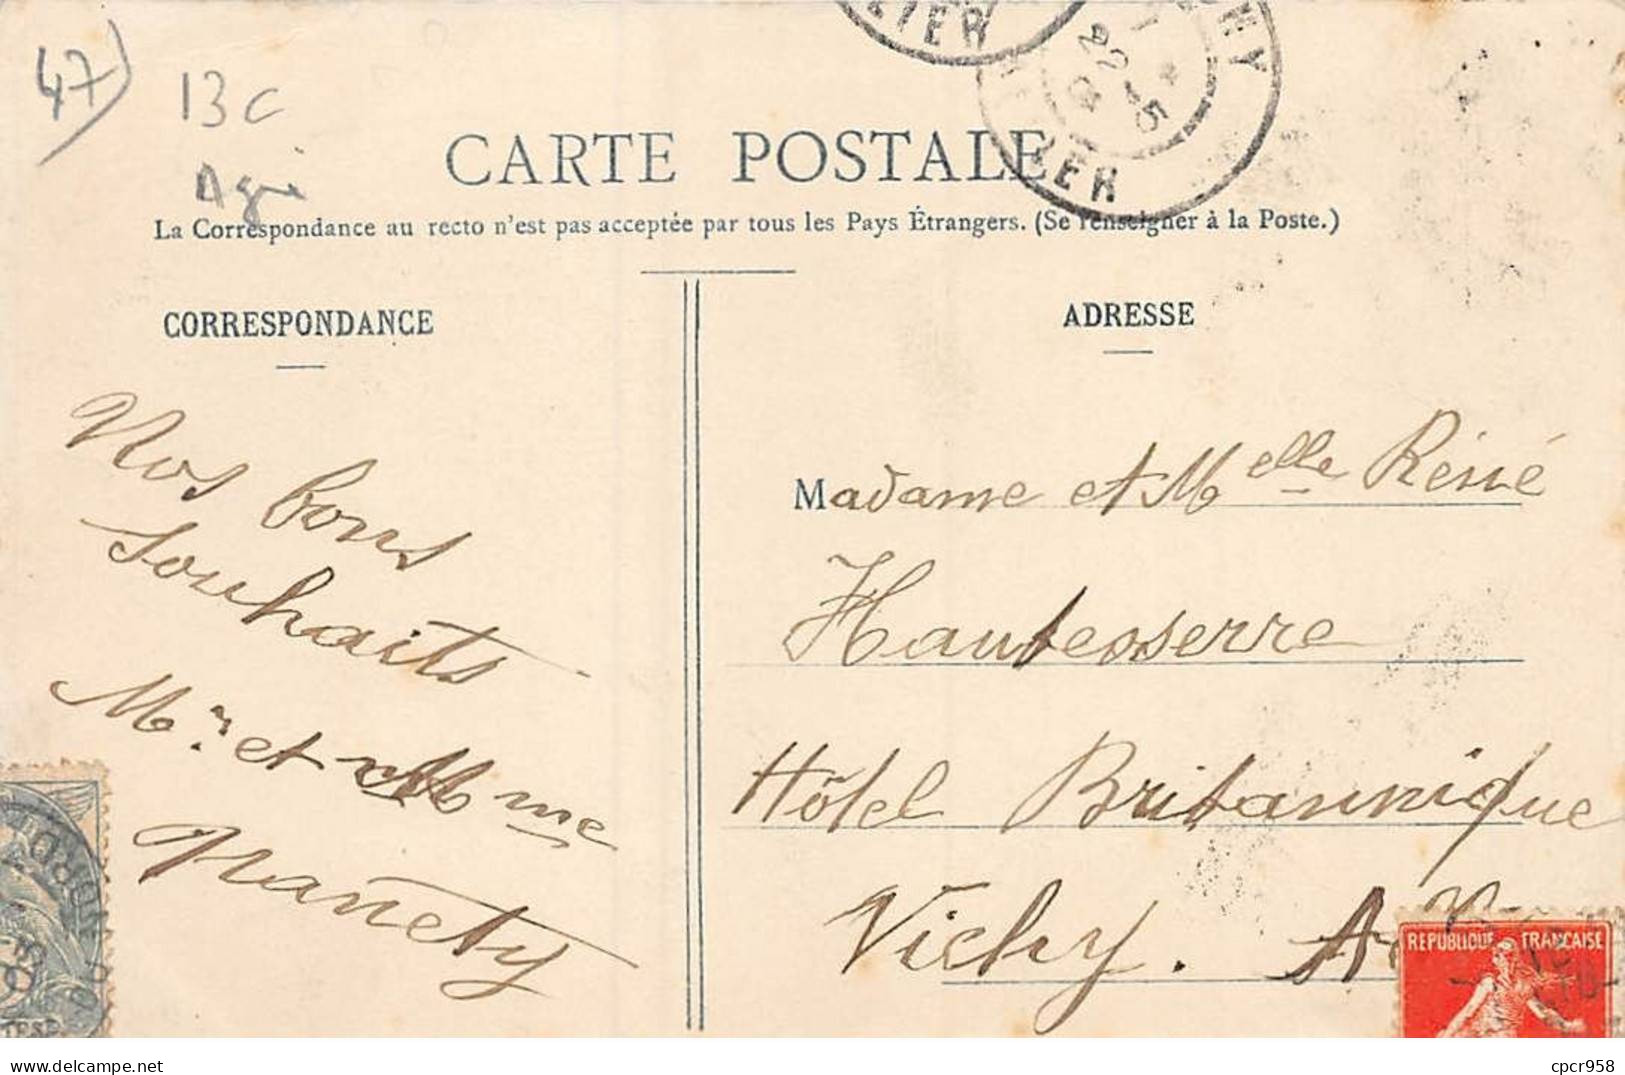 47)
13c
CARTE POSTALE
La Correspondance au recto n'est pas acceptée par tous les Pays Étrangers. (Se renseigner à la Poste.)
CORRESPONDANCE
Nos bons
souhaits
Mr. et Mme
ADRESSE
Madame et Melle Réné
Hautesserre
Hôtel Britannique
Vichy.
REPUBLIQUE FRANÇAISE
cpcr958